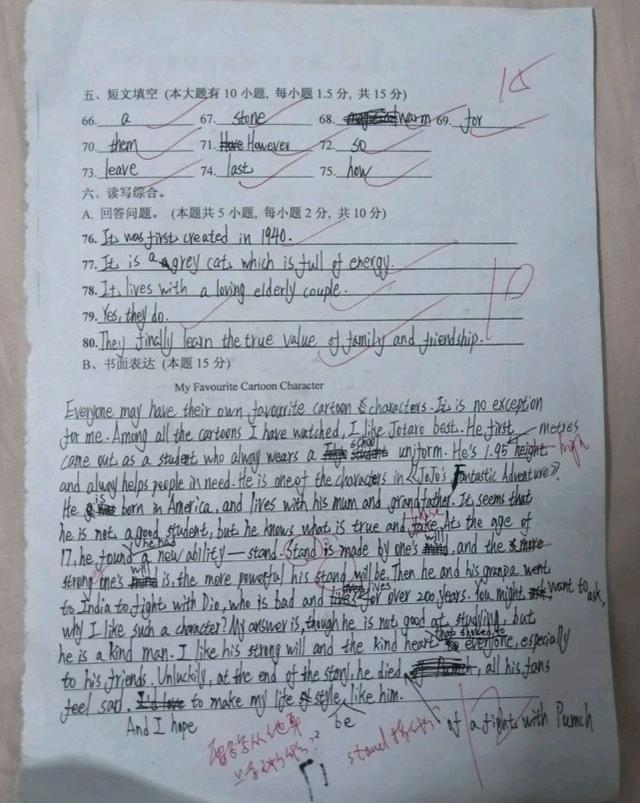 15
五、短文填空 (本大题有 10 小题, 每小题 1.5 分, 共 15 分)
66. a 67. stone 68. warm 69. for
70. them 71. However 72. so
73. leave 74. last 75. how
六、读写综合。
A. 回答问题。 (本题共 5 小题, 每小题 2 分, 共 10 分)
76. It was first created in 1940.
77. It is a grey cat which is full of energy.
78. It lives with a loving elderly couple.
79. Yes, they do.
80. They finally learn the true value of family and friendship.
10
B、书面表达 (本题 15 分)
My Favourite Cartoon Character
Everyone may have their own favourite cartoon characters. It is no exception
for me. Among all the cartoons I have watched, I like Jotaro best. He first
came out as a student who alway wears a school uniform. He's 1.95 metres height high
and alway helps people in need. He is one of the characters in《JoJo's Fantastic Adventure》.
He is born in America, and lives with his mum and grandfather. It seems that
he is not a good student, but he knows what is true and fake. At the age of
17, he found he had a new ability — stand. Stand is made by one's will, and the more
strong one's will is, the more powerful his stand will be. Then he and his granpa went
to India to fight with Dio, who is bad and lives for over 200 years. You might want to ask,
why I like such a character? My answer is, though he is not good at studying, but
he is a kind man. I like his strong will and the kind heart everyone, especially
to his friends. Unluckily, at the end of the story, he died, all his fans
feel sad. to make my life style like him.
And I hope be of a fight with
12
stand